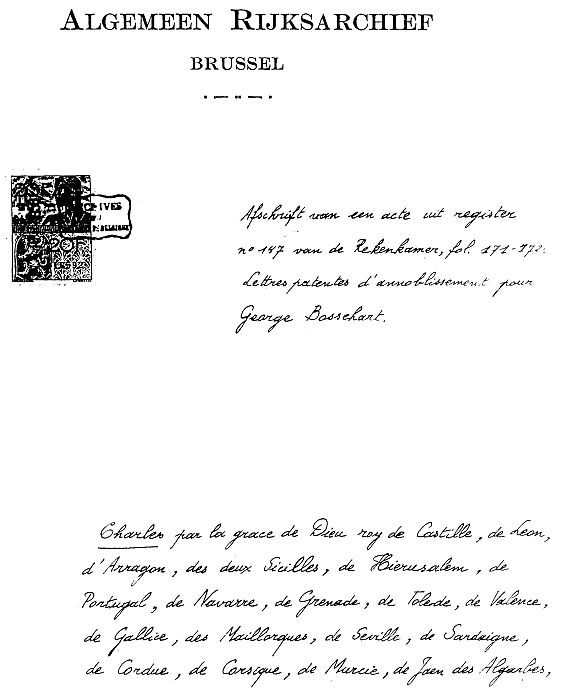 ALGEMEEN RIJKSARCHIEF
BRUSSEL
Afschrift van een acte uit register
n° 147 van de Rekenkamer, fol. 171-172:
Lettres patentes d'annoblissement pour
George Bosschart.
Charles par la grace de Dieu roy de Castille, de Leon,
d'Arragon, des deux Sicilles, de Hierusalem, de
Portugal, de Navarre, de Grenade, de Tolede, de Valence,
de Gallice, des Maillorques, de Seville, de Sardaigne,
de Cordue, de Corsique, de Murcie, de Jaen des Algarbes,